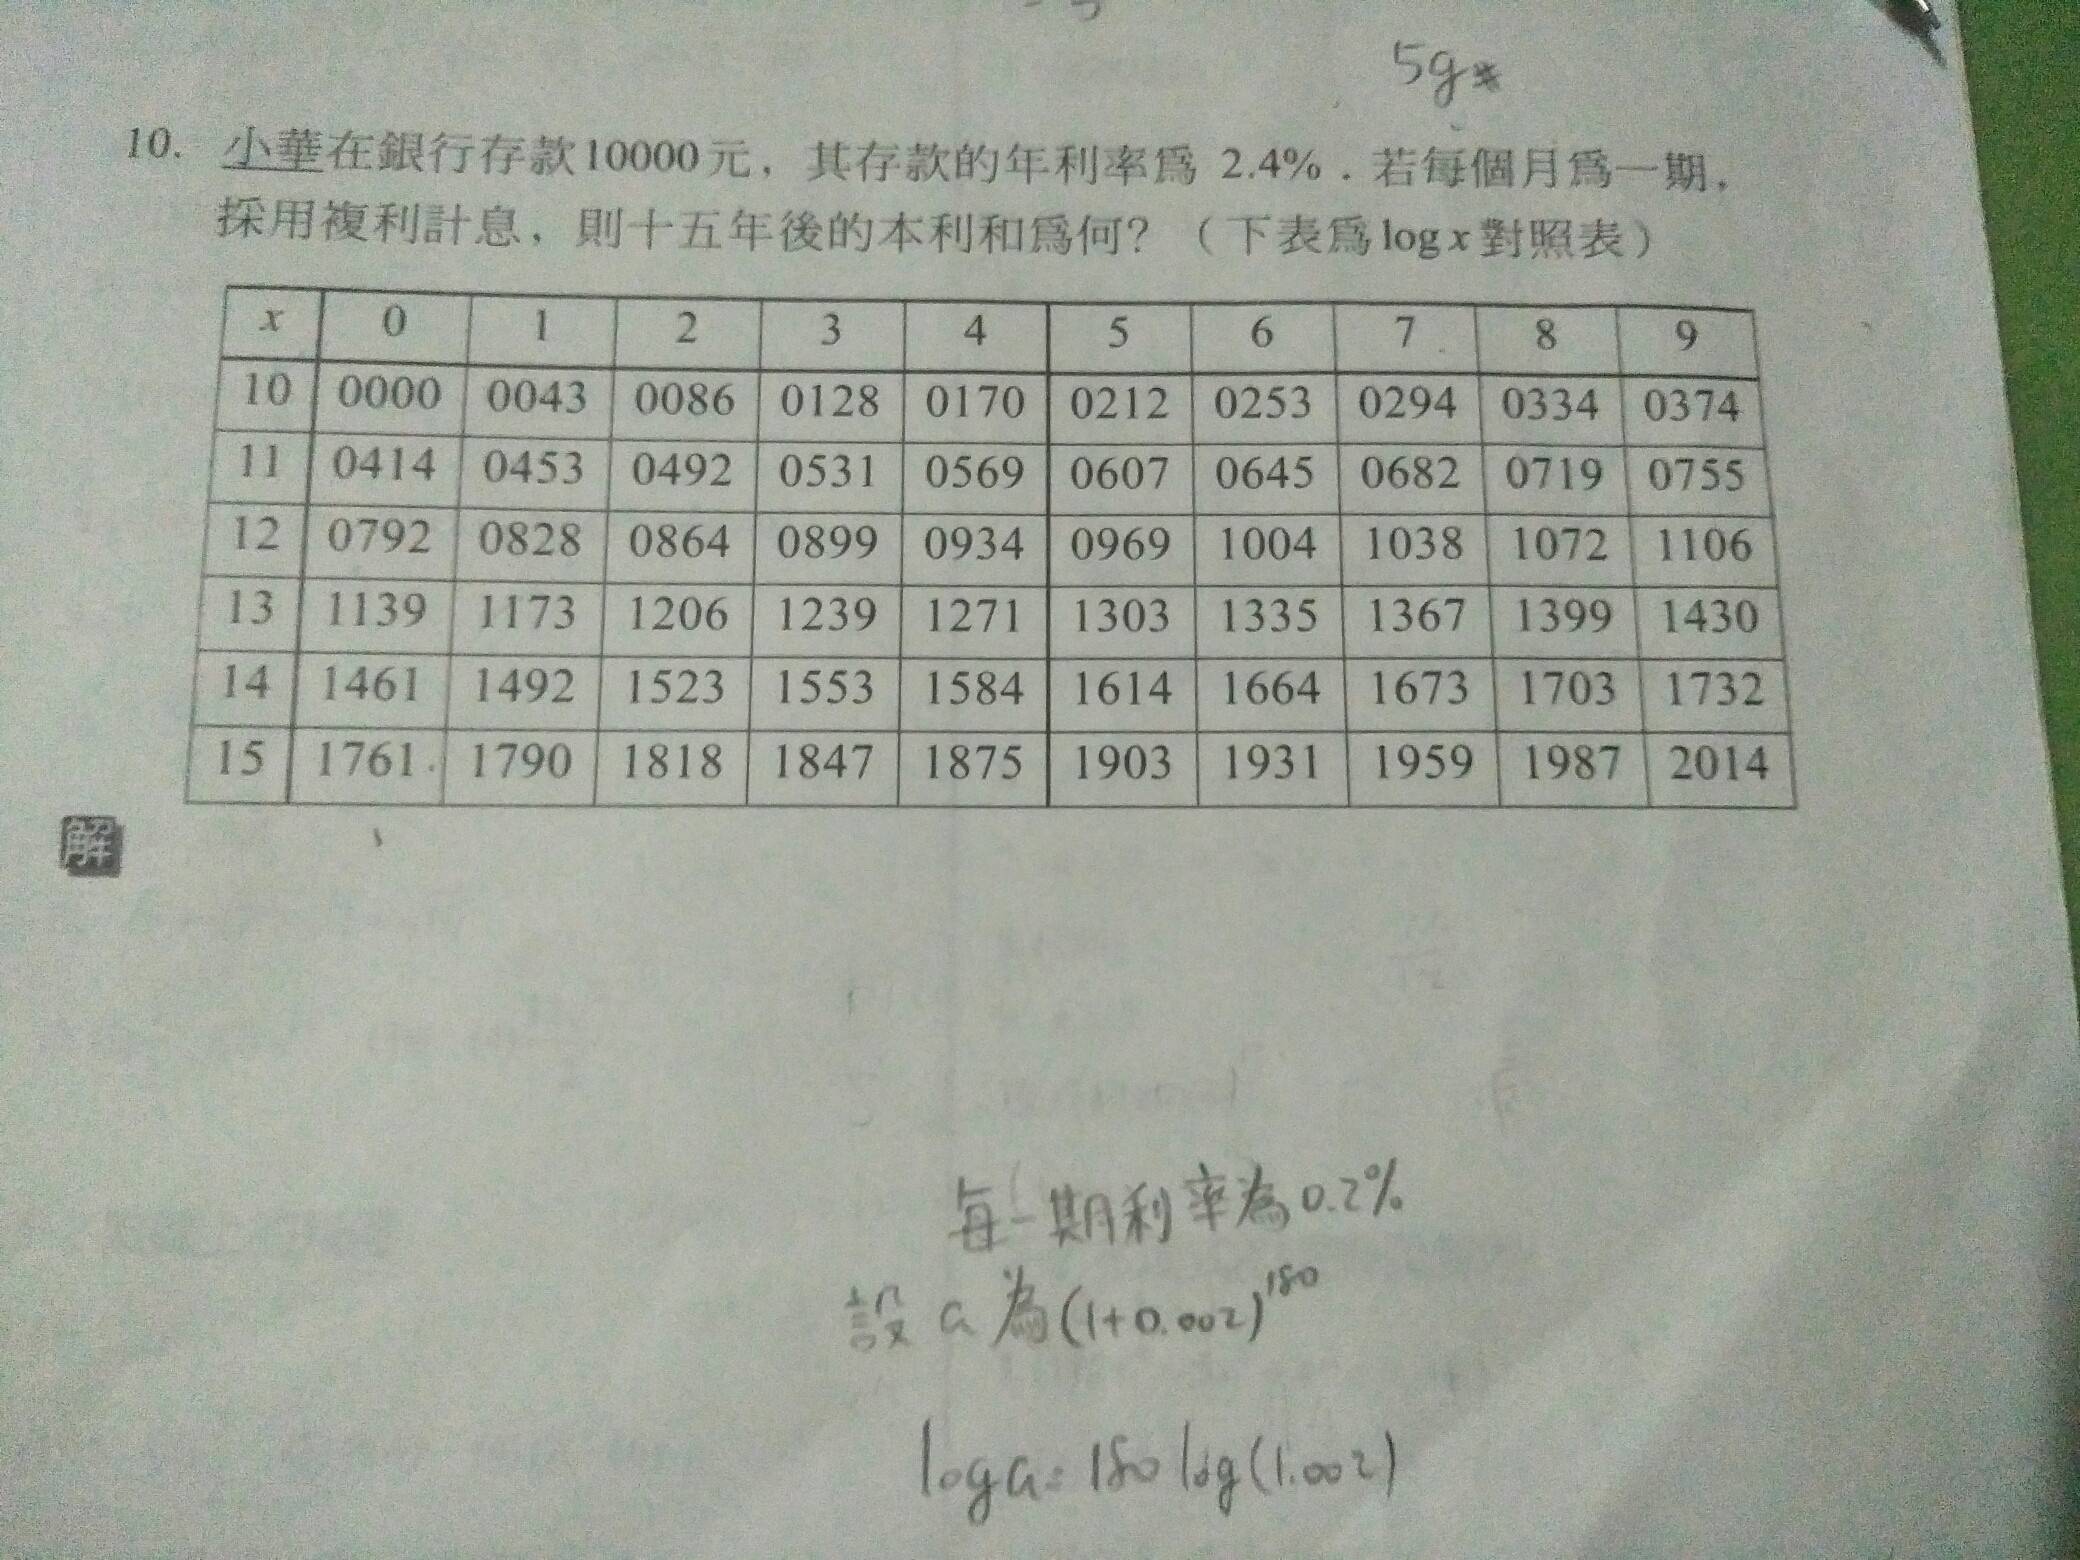 5g*
10. 小華在銀行存款10000元，其存款的年利率爲 2.4%．若每個月爲一期，
採用複利計息，則十五年後的本利和爲何？（下表爲log x對照表）
x 0 1 2 3 4 5 6 7 8 9
10 0000 0043 0086 0128 0170 0212 0253 0294 0334 0374
11 0414 0453 0492 0531 0569 0607 0645 0682 0719 0755
12 0792 0828 0864 0899 0934 0969 1004 1038 1072 1106
13 1139 1173 1206 1239 1271 1303 1335 1367 1399 1430
14 1461 1492 1523 1553 1584 1614 1664 1673 1703 1732
15 1761 1790 1818 1847 1875 1903 1931 1959 1987 2014
解
每一期利率為0.2%
設 a 為(1+0.002)^180
log a = 180 log(1.002)